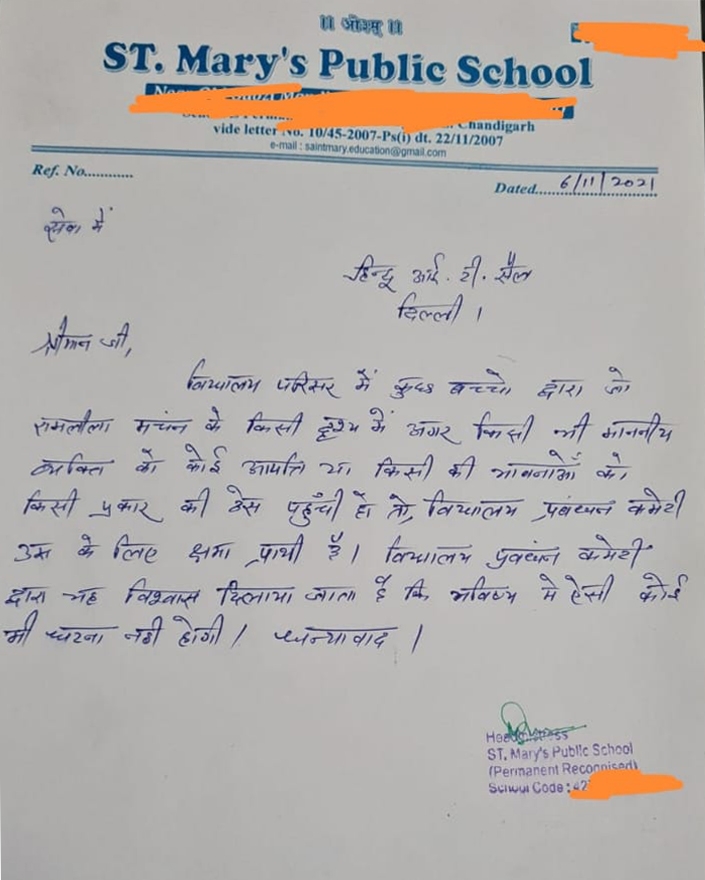 ॥ ओ३म् ॥
ST. Mary's Public School
Chandigarh
vide letter No. 10/45-2007-Ps(i) dt. 22/11/2007
e-mail : saintmary.education@gmail.com
Ref. No............
Dated.....6/11/2021
सेवा में
हिन्दू आई. टी. सैल
दिल्ली ।
श्रीमान जी,
विधालय परिसर में कुछ बच्चो द्वारा जो
रामलीला मचंन के किसी दृश्य में अगर किसी भी माननीय
व्यक्ति को कोई आपत्ति या किसी की भावनाओं को
किसी प्रकार की ठेस पहुँची हो तो, विधालय प्रबंधन कमेटी
उस के लिए क्षमा प्रार्थी है। विधालय प्रबधंन कमेटी
द्वारा यह विश्वास दिलाया जाता है कि भविष्य मे ऐसी कोई
भी घटना नही होगी। धन्यावाद ।
Headmistress
ST. Mary's Public School
(Permanent Recognised)
School Code : 42